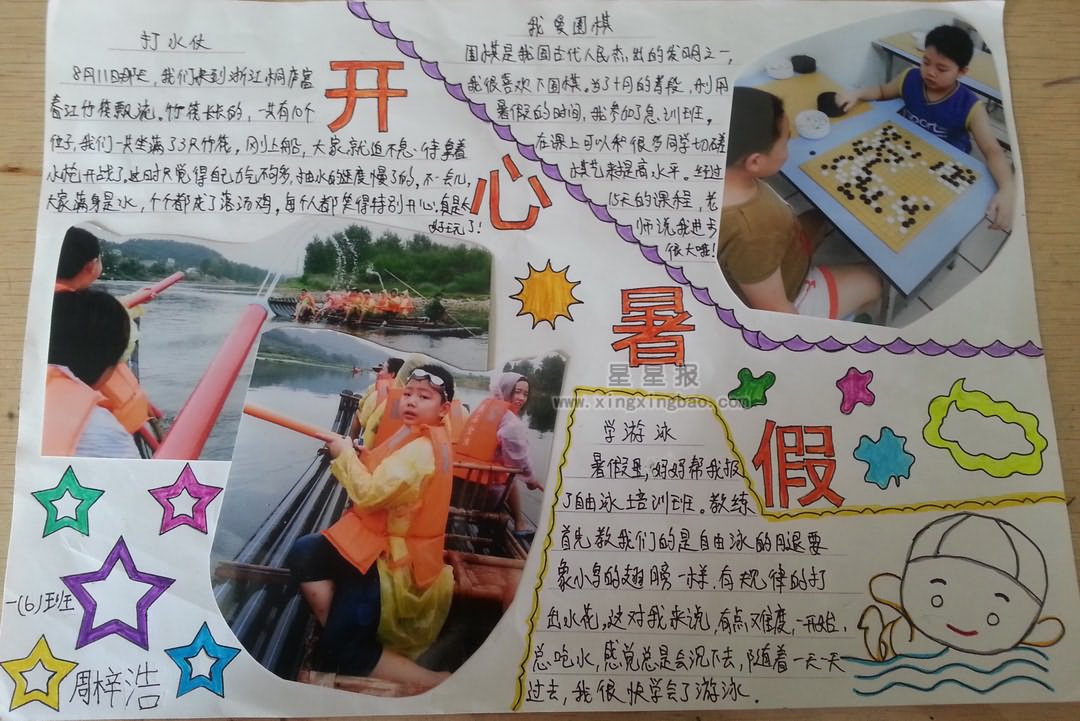 打水仗
8月11日那天，我们来到浙江桐庐富
春江竹筏飘流。竹筏长长的，一共有10个
位子，我们一共坐满了3只竹筏。刚刚上船，大家就迫不及待拿着
水炮开战了。这时只觉得自己力气不够多，抽水的速度慢了的。不一会儿，
大家满身是水，个个都成了落汤鸡，每个人都笑得特别开心。真是太
好玩了！
开心暑假
我爱围棋
围棋是我国古代人民杰出的发明之一，
我很喜欢下围棋。为了十月的考段，利用
暑假的时间，我参加了培训班。
在课上可以和很多同学切磋
棋艺来提高水平。经过
15天的课程，老
师说我进步
很大哦！
星星报
www.xingxingbao.com
学游泳
暑假里，好好帮我报
了自由泳培训班。教练
首先教我们的是自由泳的用腿要
象小鸟的翅膀一样，有规律的打
出水花，这对我来说，有点难度，一开始，
总吃水，感觉总是会沉下去，随着一天一天
过去，我很快学会了游泳．
一(6)班
周梓浩